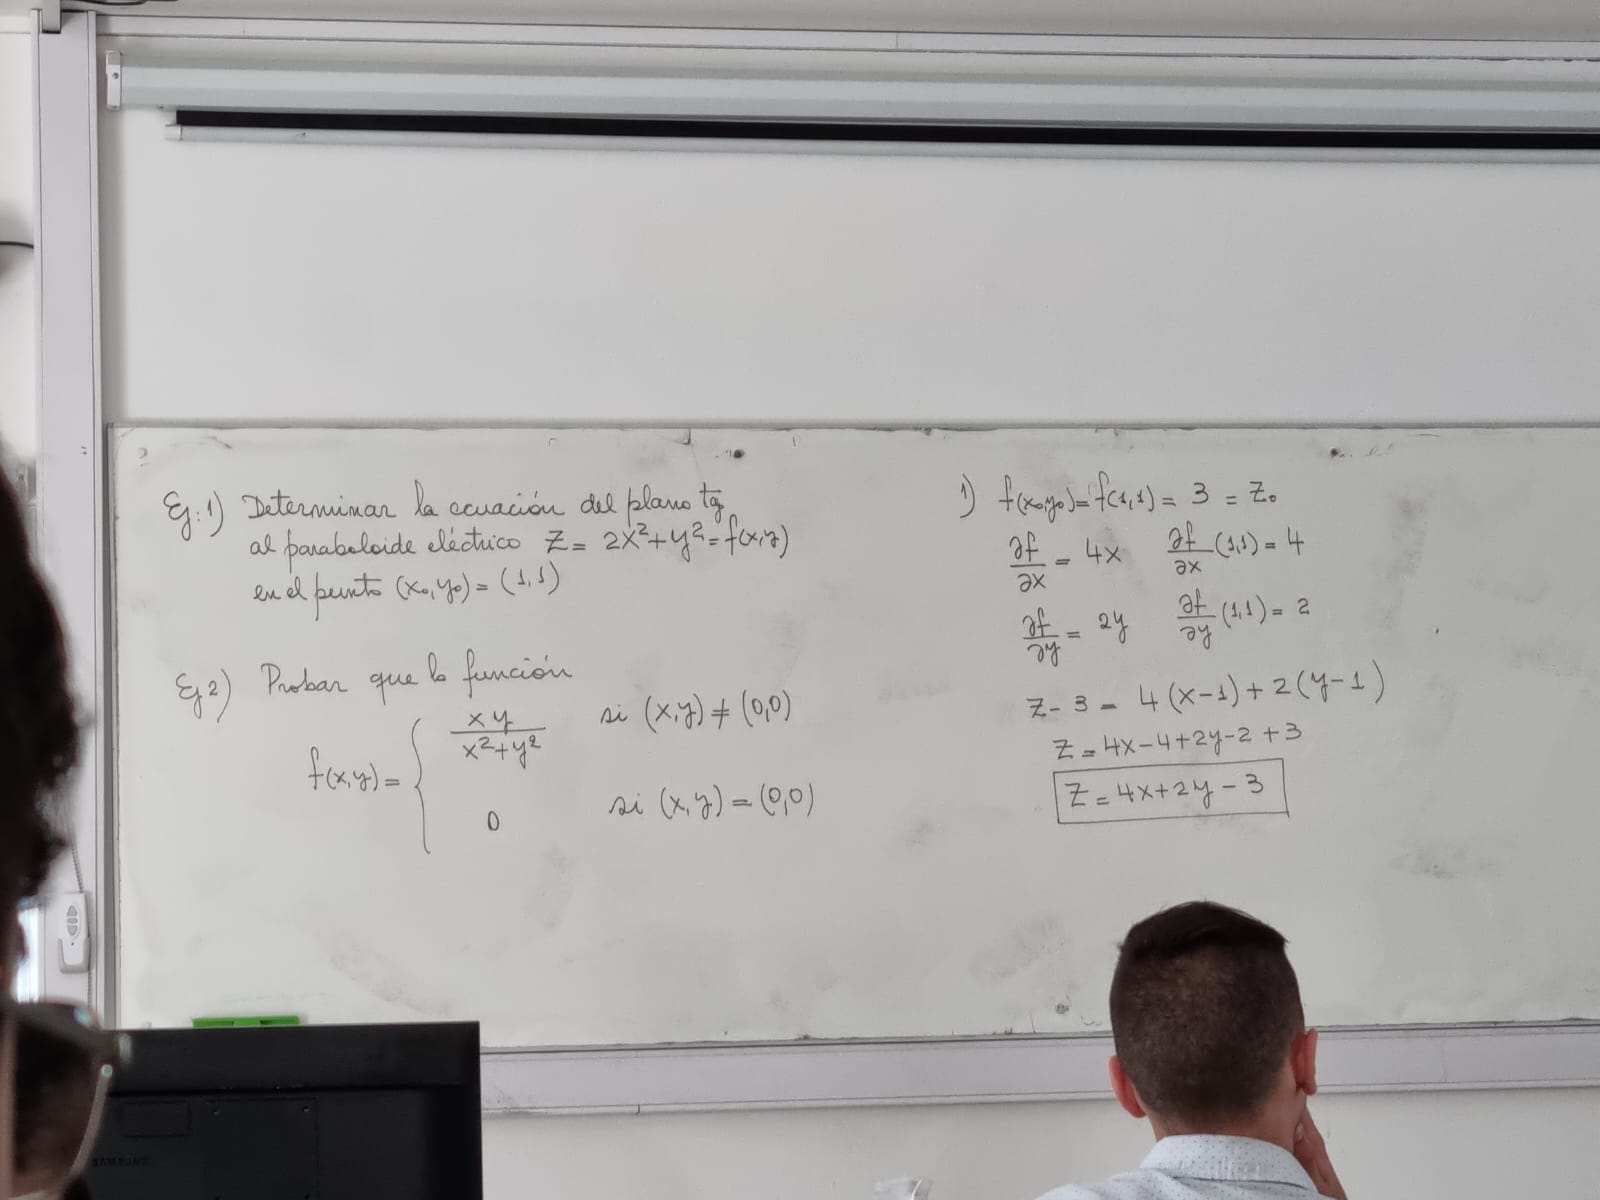 Ej: 1) Determinar la ecuación del plano tg
al paraboloide eléctrico Z = 2x²+y² = f(x,y)
en el punto (x₀,y₀) = (1,1)
Ej 2) Probar que la función
f(x,y) = { xy / x²+y² si (x,y) ≠ (0,0)
0 si (x,y) = (0,0)
1) f(x₀,y₀) = f(1,1) = 3 = Z₀
∂f/∂x = 4x ∂f/∂x (1,1) = 4
∂f/∂y = 2y ∂f/∂y (1,1) = 2
Z - 3 = 4(x-1) + 2(y-1)
Z = 4x-4+2y-2+3
Z = 4x+2y-3
SAMSUNG